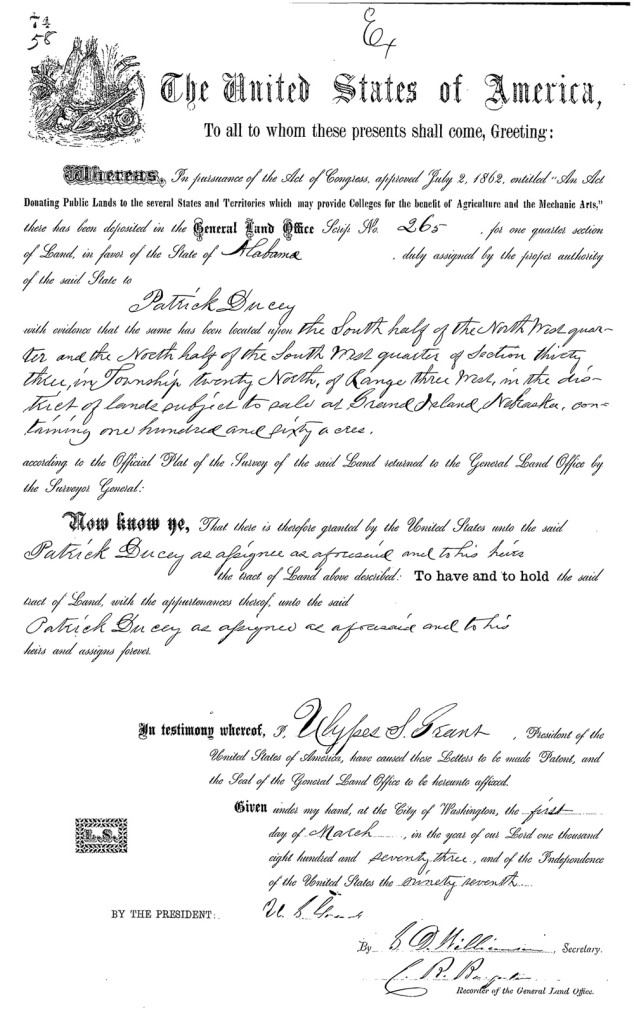 74
58
Ex
The United States of America,
To all to whom these presents shall come, Greeting:
Whereas, In pursuance of the Act of Congress, approved July 2, 1862, entitled "An Act
Donating Public Lands to the several States and Territories which may provide Colleges for the benefit of Agriculture and the Mechanic Arts,"
there has been deposited in the General Land Office Scrip No. 265 , for one quarter section
of Land, in favor of the State of Alabama , duly assigned by the proper authority
of the said State to
Patrick Ducey
with evidence that the same has been located upon the South half of the North West quar-
ter and the North half of the South West quarter of Section thirty
three, in Township twenty North, of Range three West, in the dis-
trict of lands subject to sale at Grand Island, Nebraska, con-
taining one hundred and sixty acres.
according to the Official Plat of the Survey of the said Land returned to the General Land Office by
the Surveyor General:
Now know ye, That there is therefore granted by the United States unto the said
Patrick Ducey as assignee as aforesaid and to his heirs
the tract of Land above described: To have and to hold the said
tract of Land, with the appurtenances thereof, unto the said
Patrick Ducey as assignee as aforesaid and to his
heirs and assigns forever.
In testimony whereof, I, Ulysses S. Grant , President of the
United States of America, have caused these Letters to be made Patent, and
the Seal of the General Land Office to be hereunto affixed.
Given under my hand, at the City of Washington, the first
day of March , in the year of our Lord one thousand
eight hundred and seventy three, and of the Independence
of the United States the ninety seventh
L.S.
BY THE PRESIDENT: U. S. Grant
By S. D. Williamson, Secretary.
C. R.
Recorder of the General Land Office.